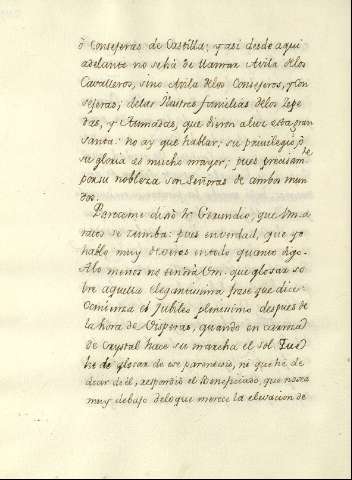 ò Consejeras de Castilla; y asi desde aqui
adelante no se ha de llamar Avila delos
Cavalleros, sino Avila delos Consejeros, y Con
sejeras; delas Ilustres familias delos Zepe
das, y Aumadas, que dieron a luz esta gran
santa: no ay que hablar; su privilegio, ò
su gloria es mucho mayor; pues precisamte
por su nobleza son Señoras de ambos mun
dos.
Pareceme dijo Fr Gerundio, que Vm. a
ratos se zumba: pues en verdad, que yo
hablo muy deveras en todo quanto digo.
Alo menos no tendrà Vm. que glosar so
bre aquella elegantissima frase que dice
Comienza el Jubileo plenissimo despues de
la hora de Visperas, quando en carrera
de crystal hace su marcha el sol. Què
he de glosar de ese parentesis, ni que hè de
decir de èl, respondiò el Beneficiado, que no sea
muy debajo delo que merece la elevacion de